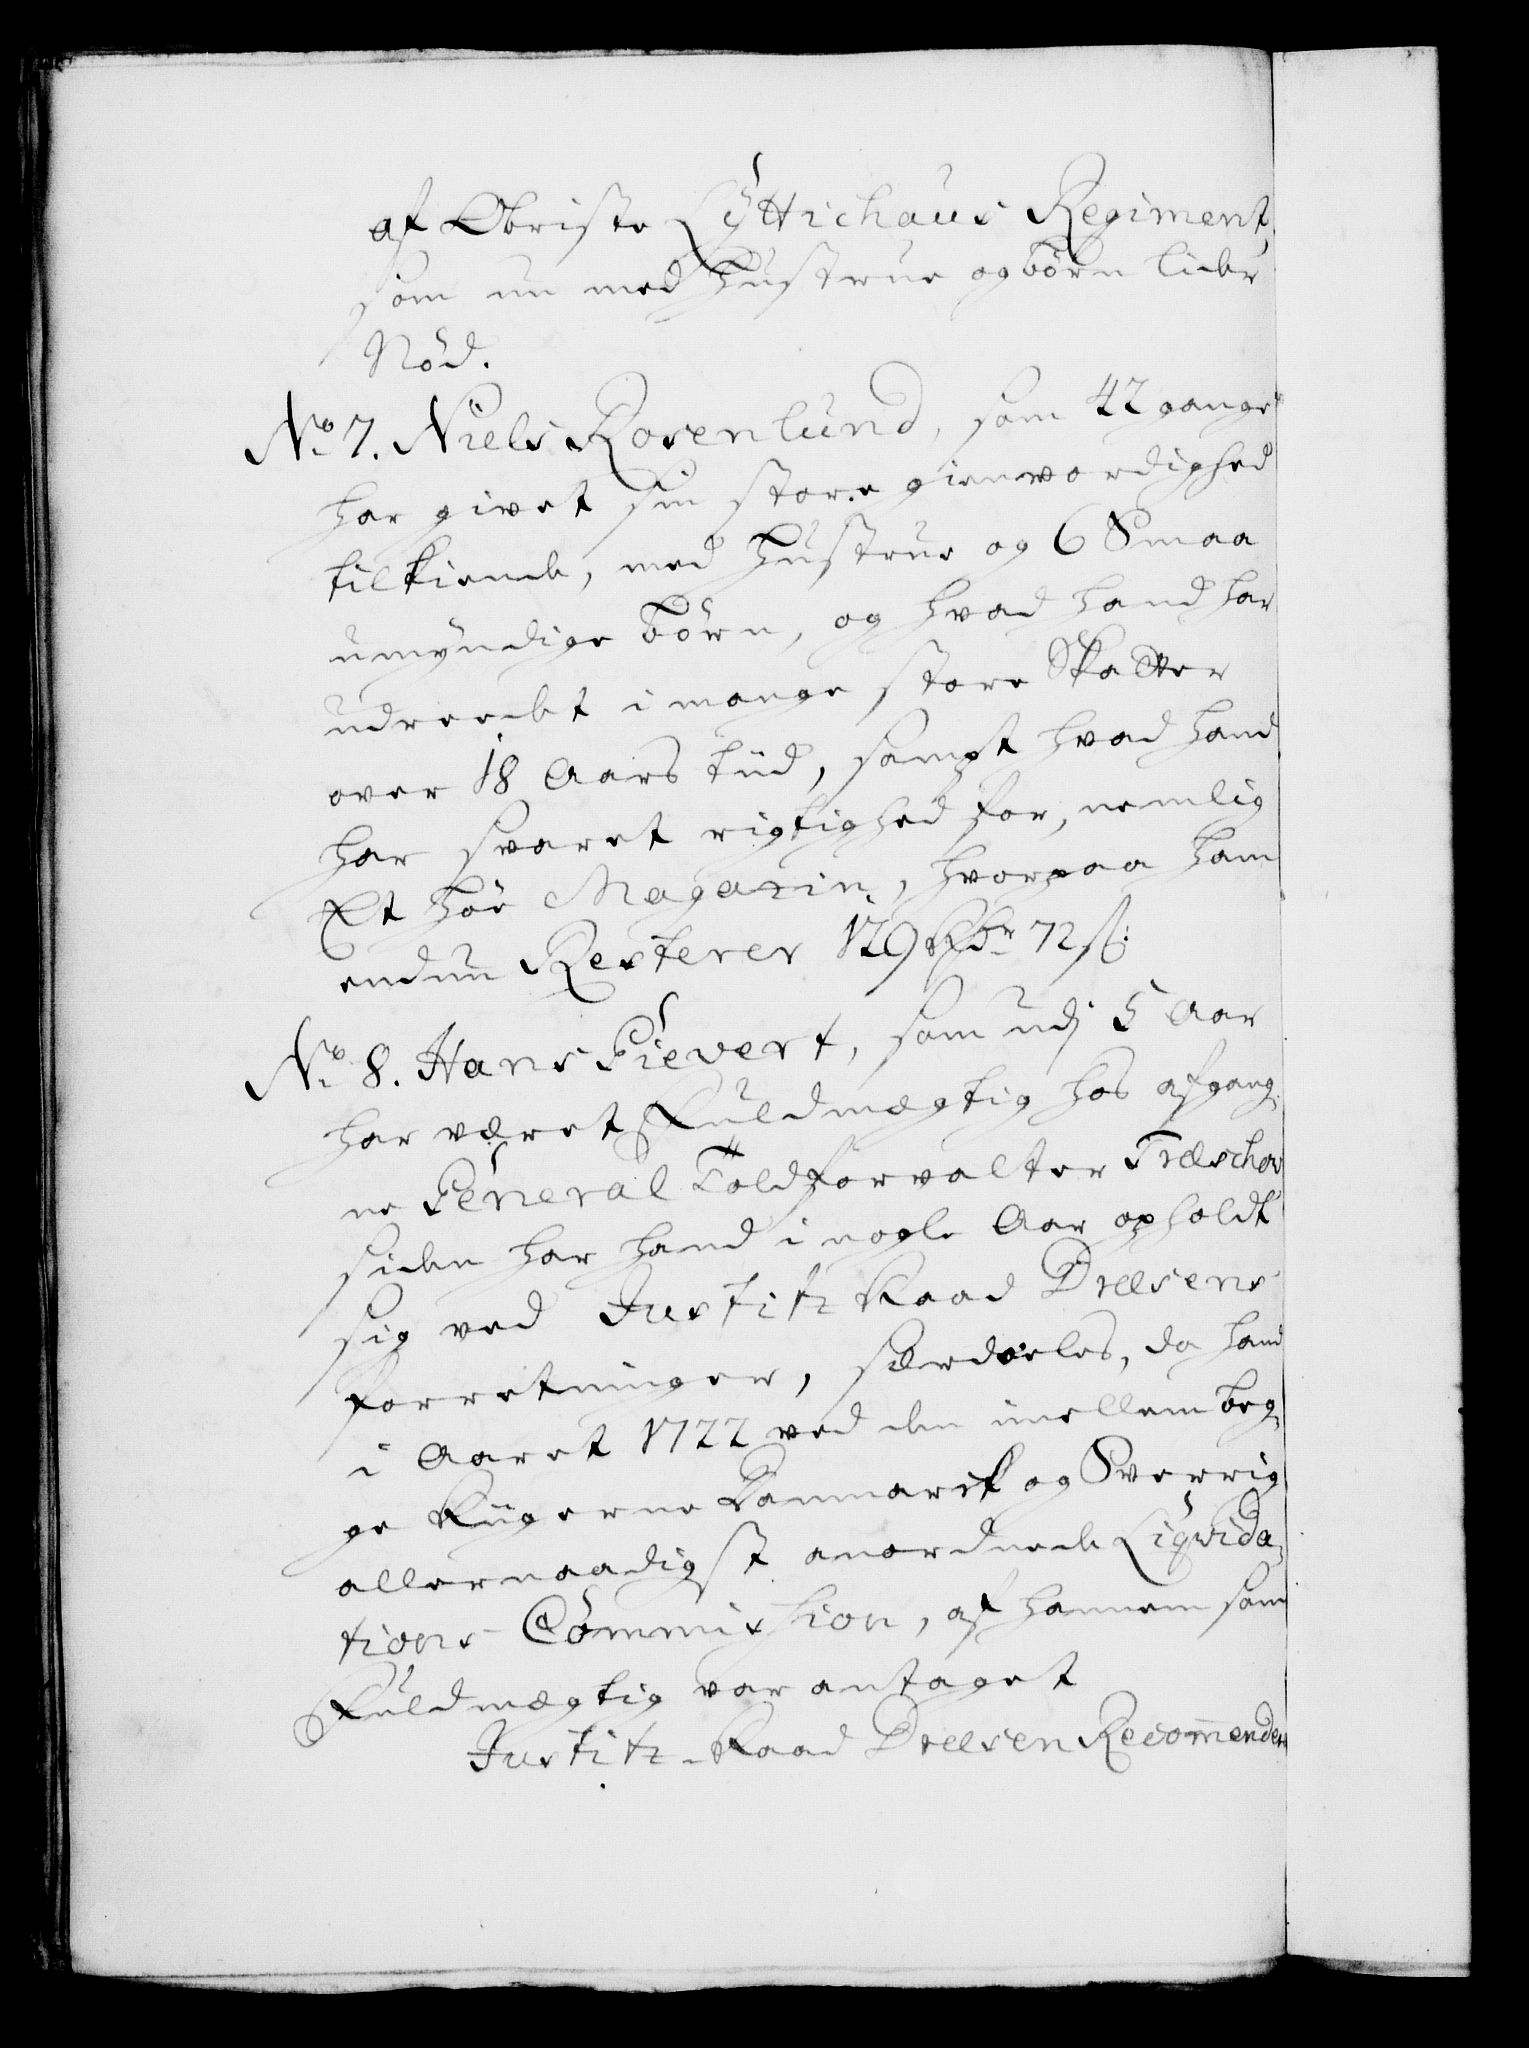 af Obriste Lÿttichaus Regiment,
som nu med Hustrue og børn lider
Nöd.
No 7. Niels Rosenlund, som 42 gange
har givet sin store gienvordighed
tilkiende, med Hustrue og 6 Smaa
umÿndige børn, og hvad hand har
udreedet i mange store Skatter
over 18 Aars tiid, sampt hvad hand
har svaret rigtighed for, nemlig
Et höe Magazin, hvorpaa ham
endnu Resterer 129 Rdr 72 s:
No 8. Hans Sievert, som udj 5 Aar
har været Fuldmægtig hos afgang,
ne General Toldforvalter Træschov
siden har hand i nogle Aar opholdt
sig ved Justitz Raad Dreesens
forretninger, særdeeles, da hand
i Aaret 1722 ved den imellem beg,
ge Riigerne Danmarck og Sverrig
allernaadigst anordnede Liqvida,
tions Commission, af hannem som
Fuldmægtig var antaget
Justitz-Raad Dreesen Recommender